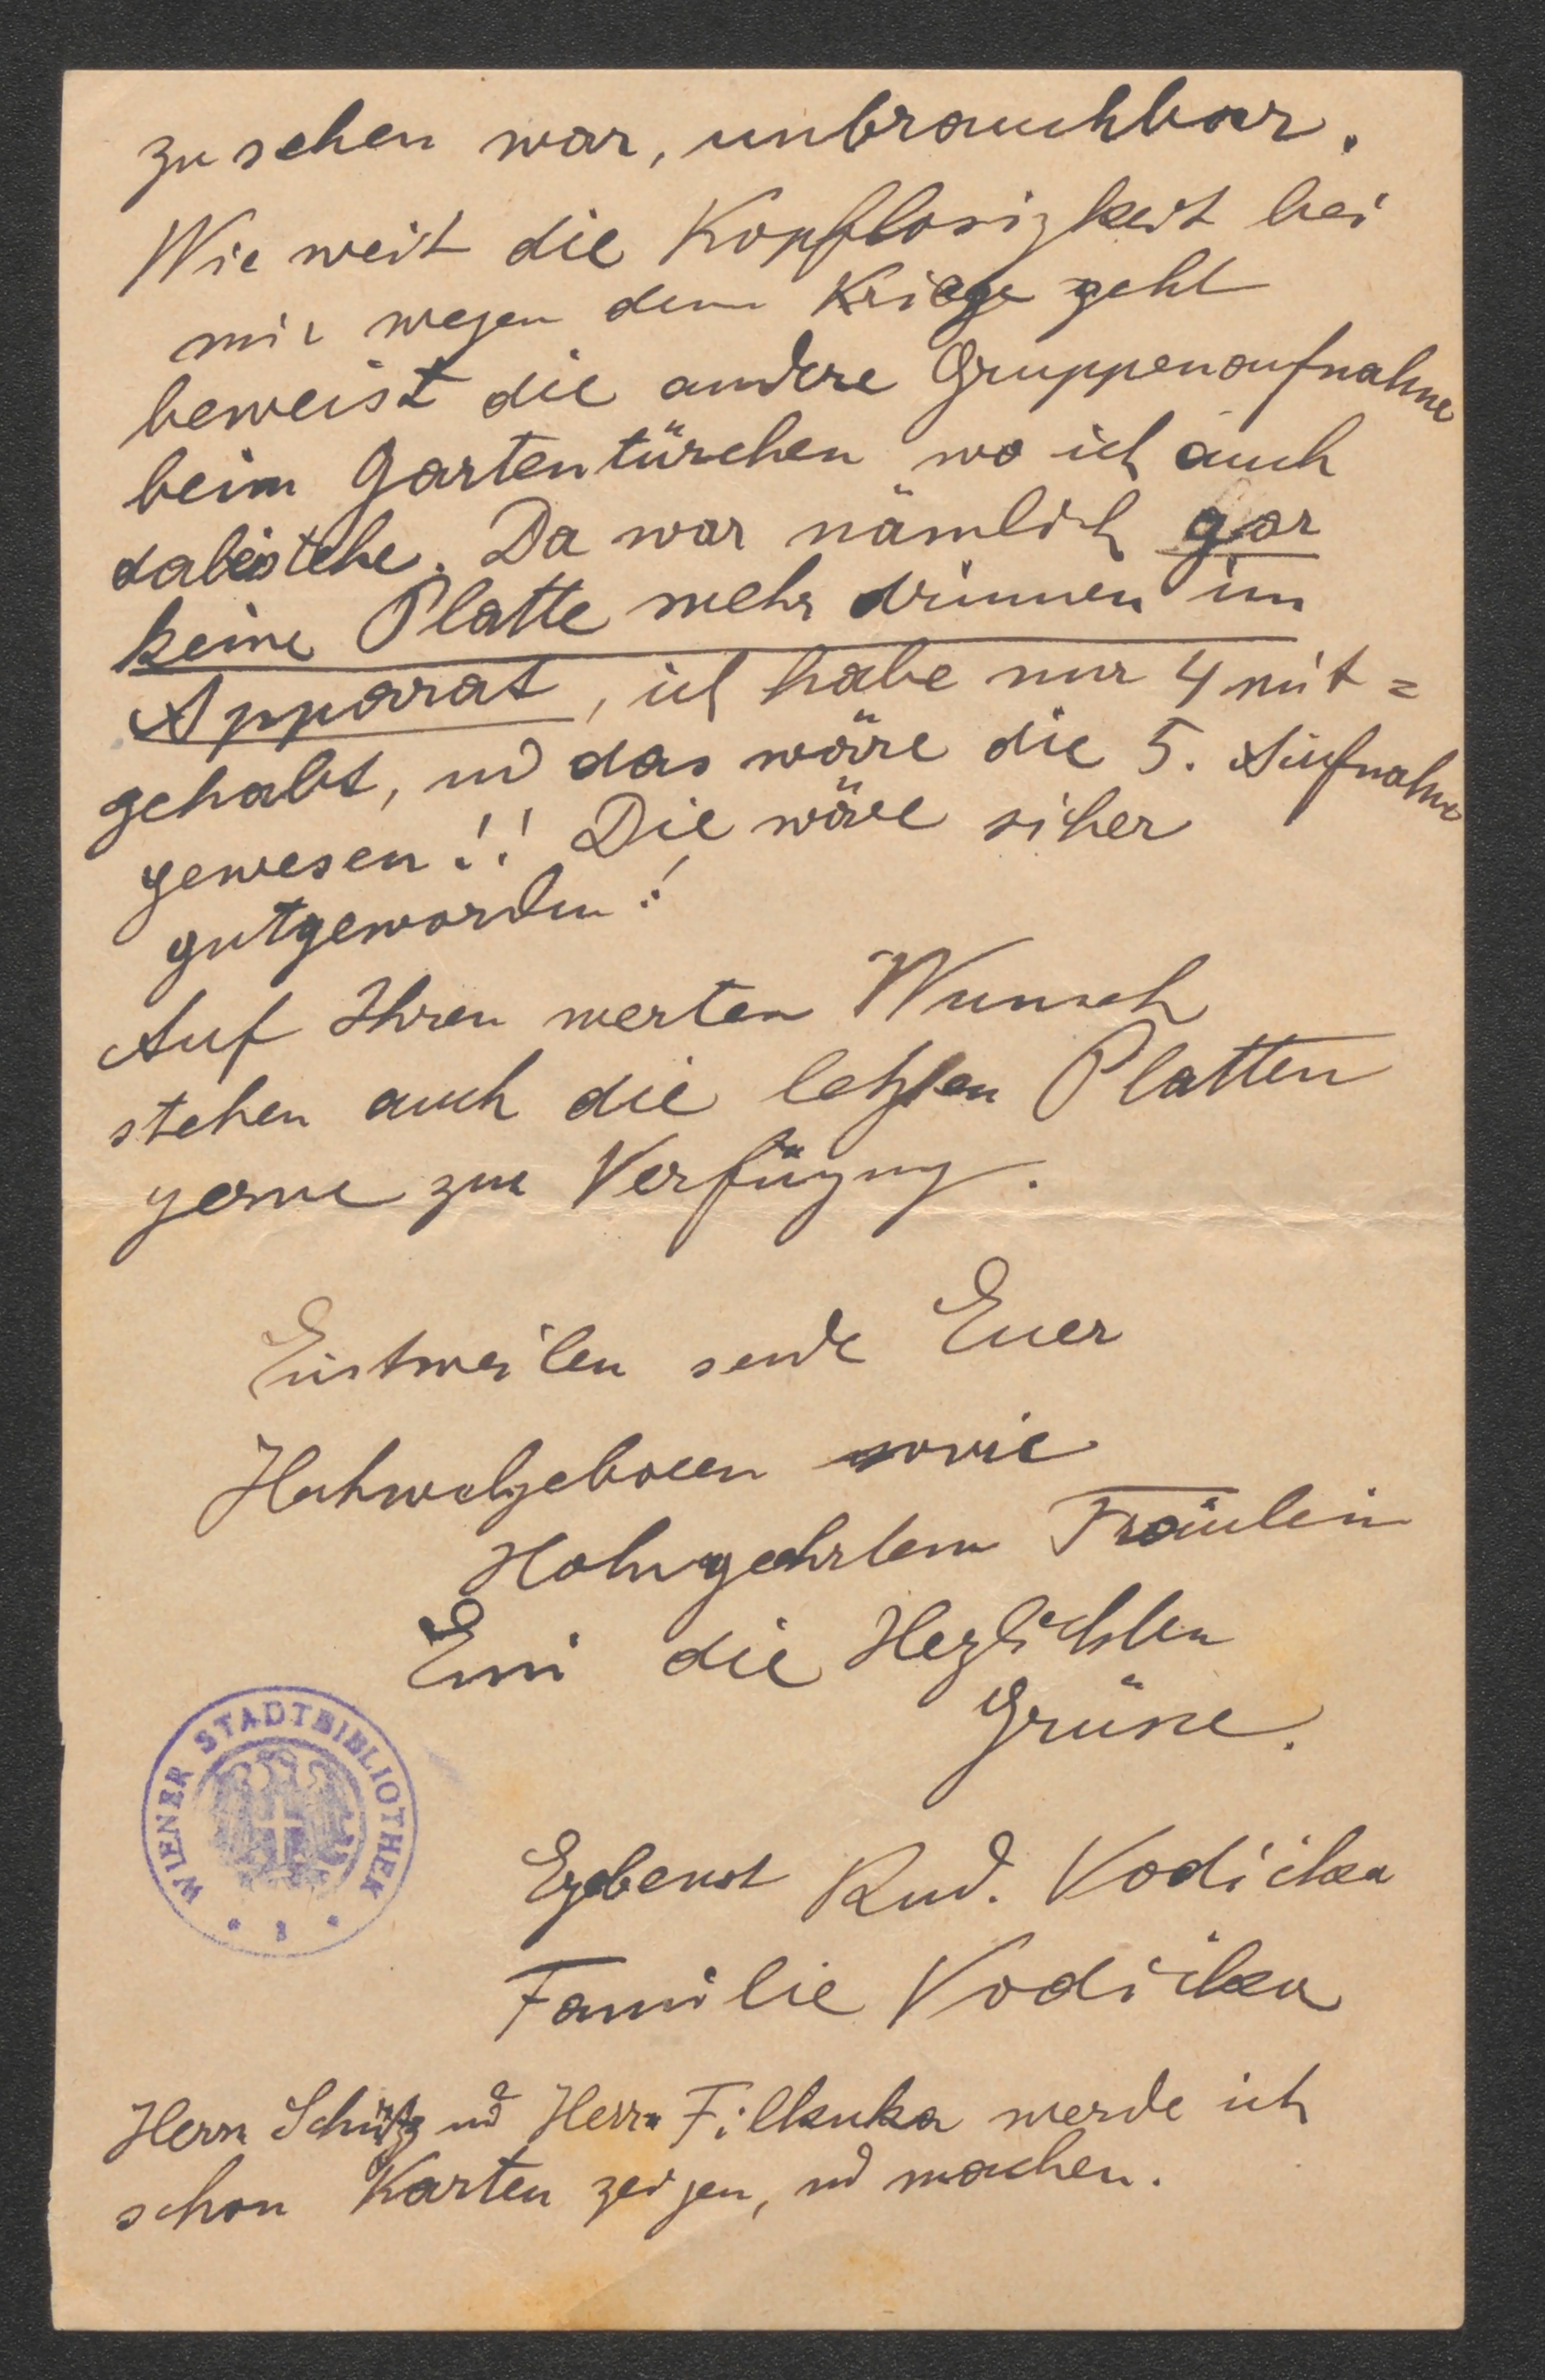 zu sehen war, unbrauchbar.
Wie weit die Kopflosigkeit bei
mir wegen dem Kriege geht
beweist die andere Gruppenaufnahme
beim Gartentürchen wo ich auch
dabeistehe. Da war nämlich gar
keine Platte mehr drinnen im
Apparat, ich habe nur 4 mit=
gehabt, und das wäre die 5. Aufnahme
gewesen!! Die wäre sicher
gutgeworden!
Auf Ihren werten Wunsch
stehen auch die letzten Platten
gerne zur Verfügung.
Einstweilen sende Euer
Hochwolgeboren sowie
Hohngeehrtem Fräulein
Emi die Herzlichsten
Grüsse.
Ergebenst Rud. Vodicka
Familie Vodicka
WIENER STADTBIBLIOTHEK
Herrn Schütz und Herrn Filkuka werde ich
schon Karten zeigen, und machen.